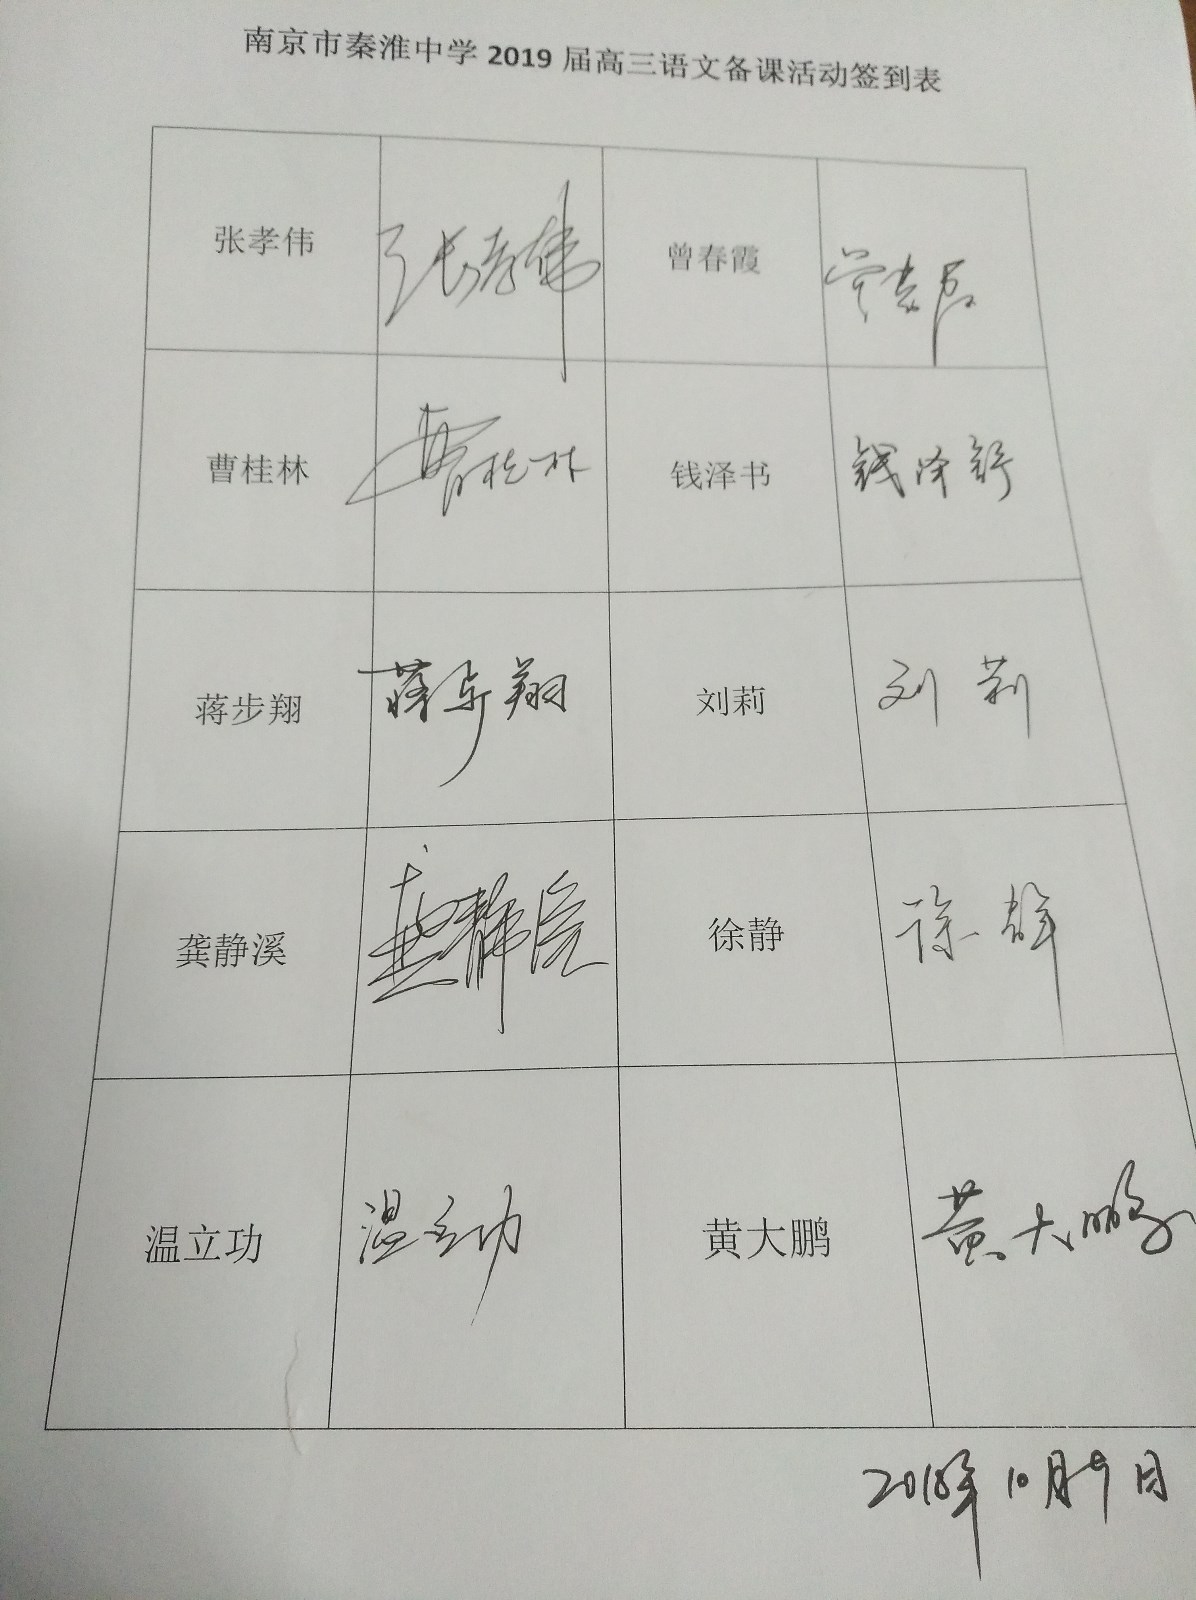 南京市秦淮中学2019届高三语文备课活动签到表
张孝伟 张孝伟 曾春霞 曾春霞
曹桂林 曹桂林 钱泽书 钱泽舒
蒋步翔 蒋步翔 刘莉 刘莉
龚静溪 龚静溪 徐静 徐静
温立功 温立功 黄大鹏 黄大鹏
2018年10月9日